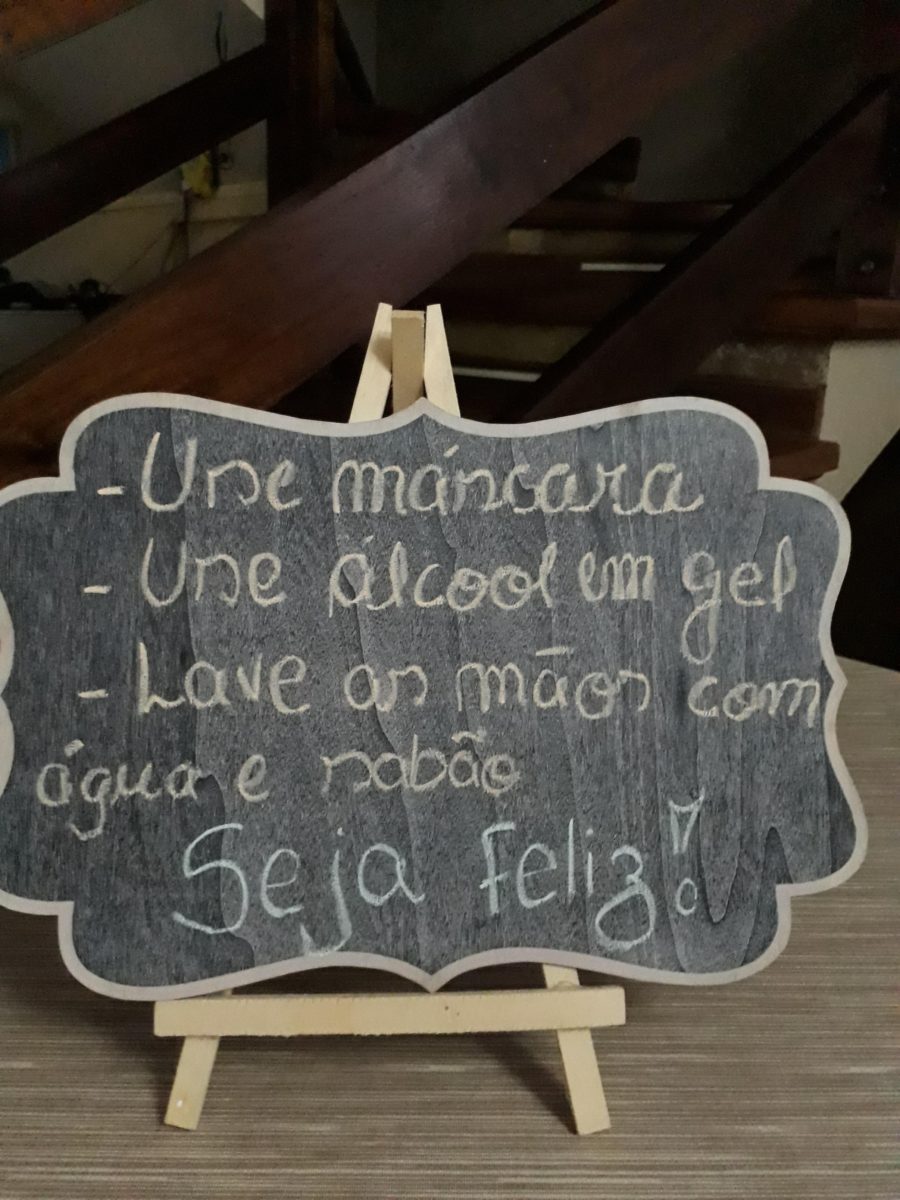 - Use máscara
- Use álcool em gel
- Lave as mãos com
água e sabão
Seja Feliz!